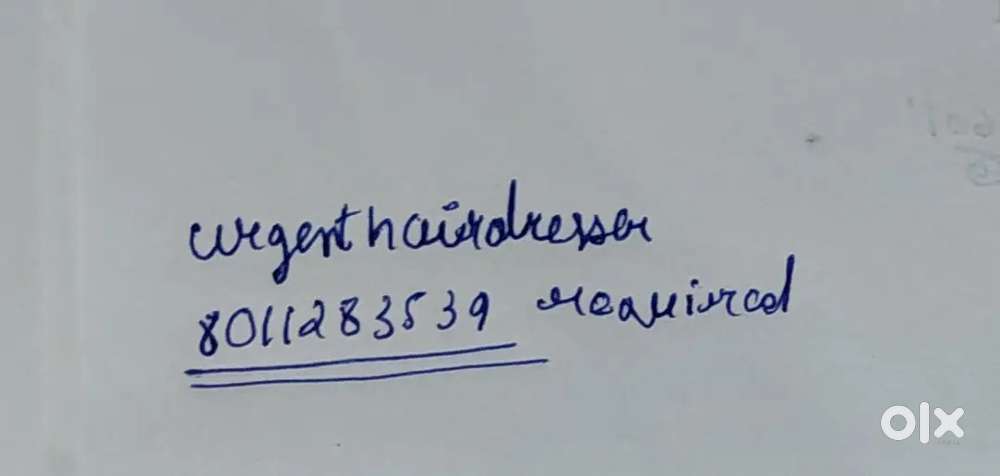 urgent hairdresser
8011283539 required
olx